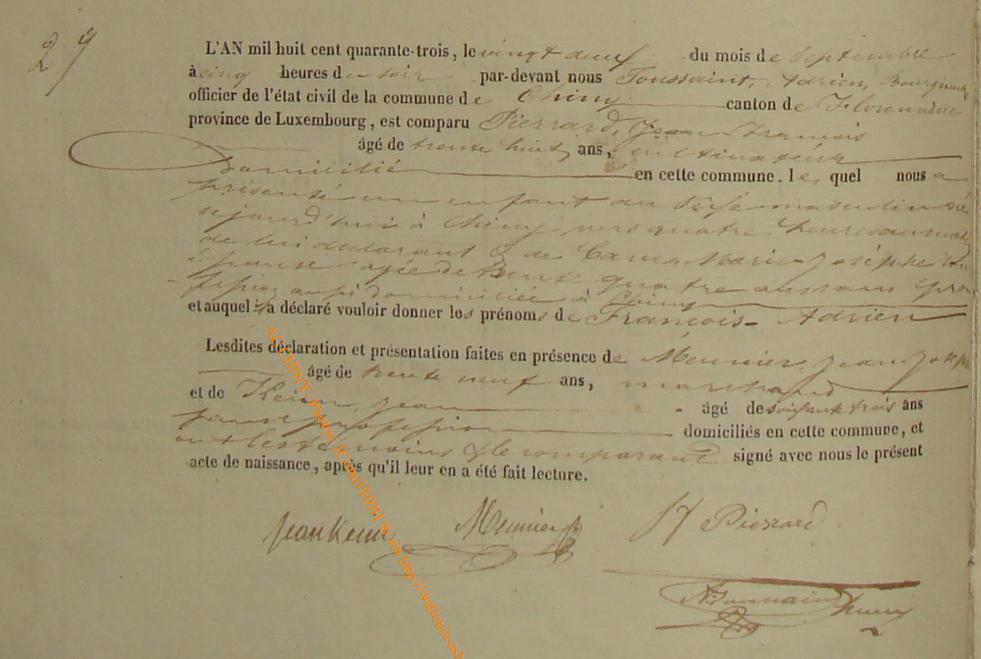 27
L'AN mil huit cent quarante-trois, le vingt deux du mois de Septembre
à cinq heures du soir par-devant nous Toussaint, Adrien, Bourgmestre
officier de l'état civil de la commune de Chiny canton de Florenville
province de Luxembourg, est comparu Pierrard, Jean François
âgé de trente huit ans, cultivateur
domicilié en cette commune. le quel nous a
présenté un enfant du sexe masculin né
aujourd'hui à Chiny vers quatre heures du matin
de lui déclarant & de Marie Josèphe son
épouse agée de trente quatre ans sans pro
fession aussi domiciliée à Chiny
et auquel il a déclaré vouloir donner les prénoms de François-Adrien
Lesdites déclaration et présentation faites en présence de Meunier, Jean Joseph
âgé de trente neuf ans, marchand
et de Keum, Jean âgé de soixante trois ans
sans profession domiciliés en cette commune, et
ont les témoins & le comparant signé avec nous le présent
acte de naissance, après qu'il leur en a été fait lecture.
Jean Keum Meunier Pierrard
A. Toussaint